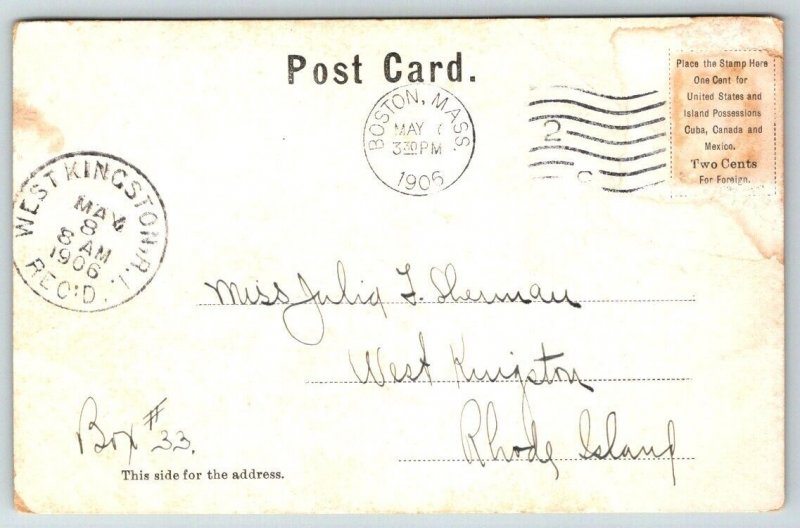 Post Card.
Place the Stamp Here
One Cent for
United States and
Island Possessions
Cuba, Canada and
Mexico.
Two Cents
For Foreign.
BOSTON, MASS.
MAY 7
3 30 PM
1906
2
WEST KINGSTON, R.I.
MAY
8
8 AM
1906
REC'D.
Miss Julia F. Sherman
West Kingston
Rhode Island
Box # 33.
This side for the address.